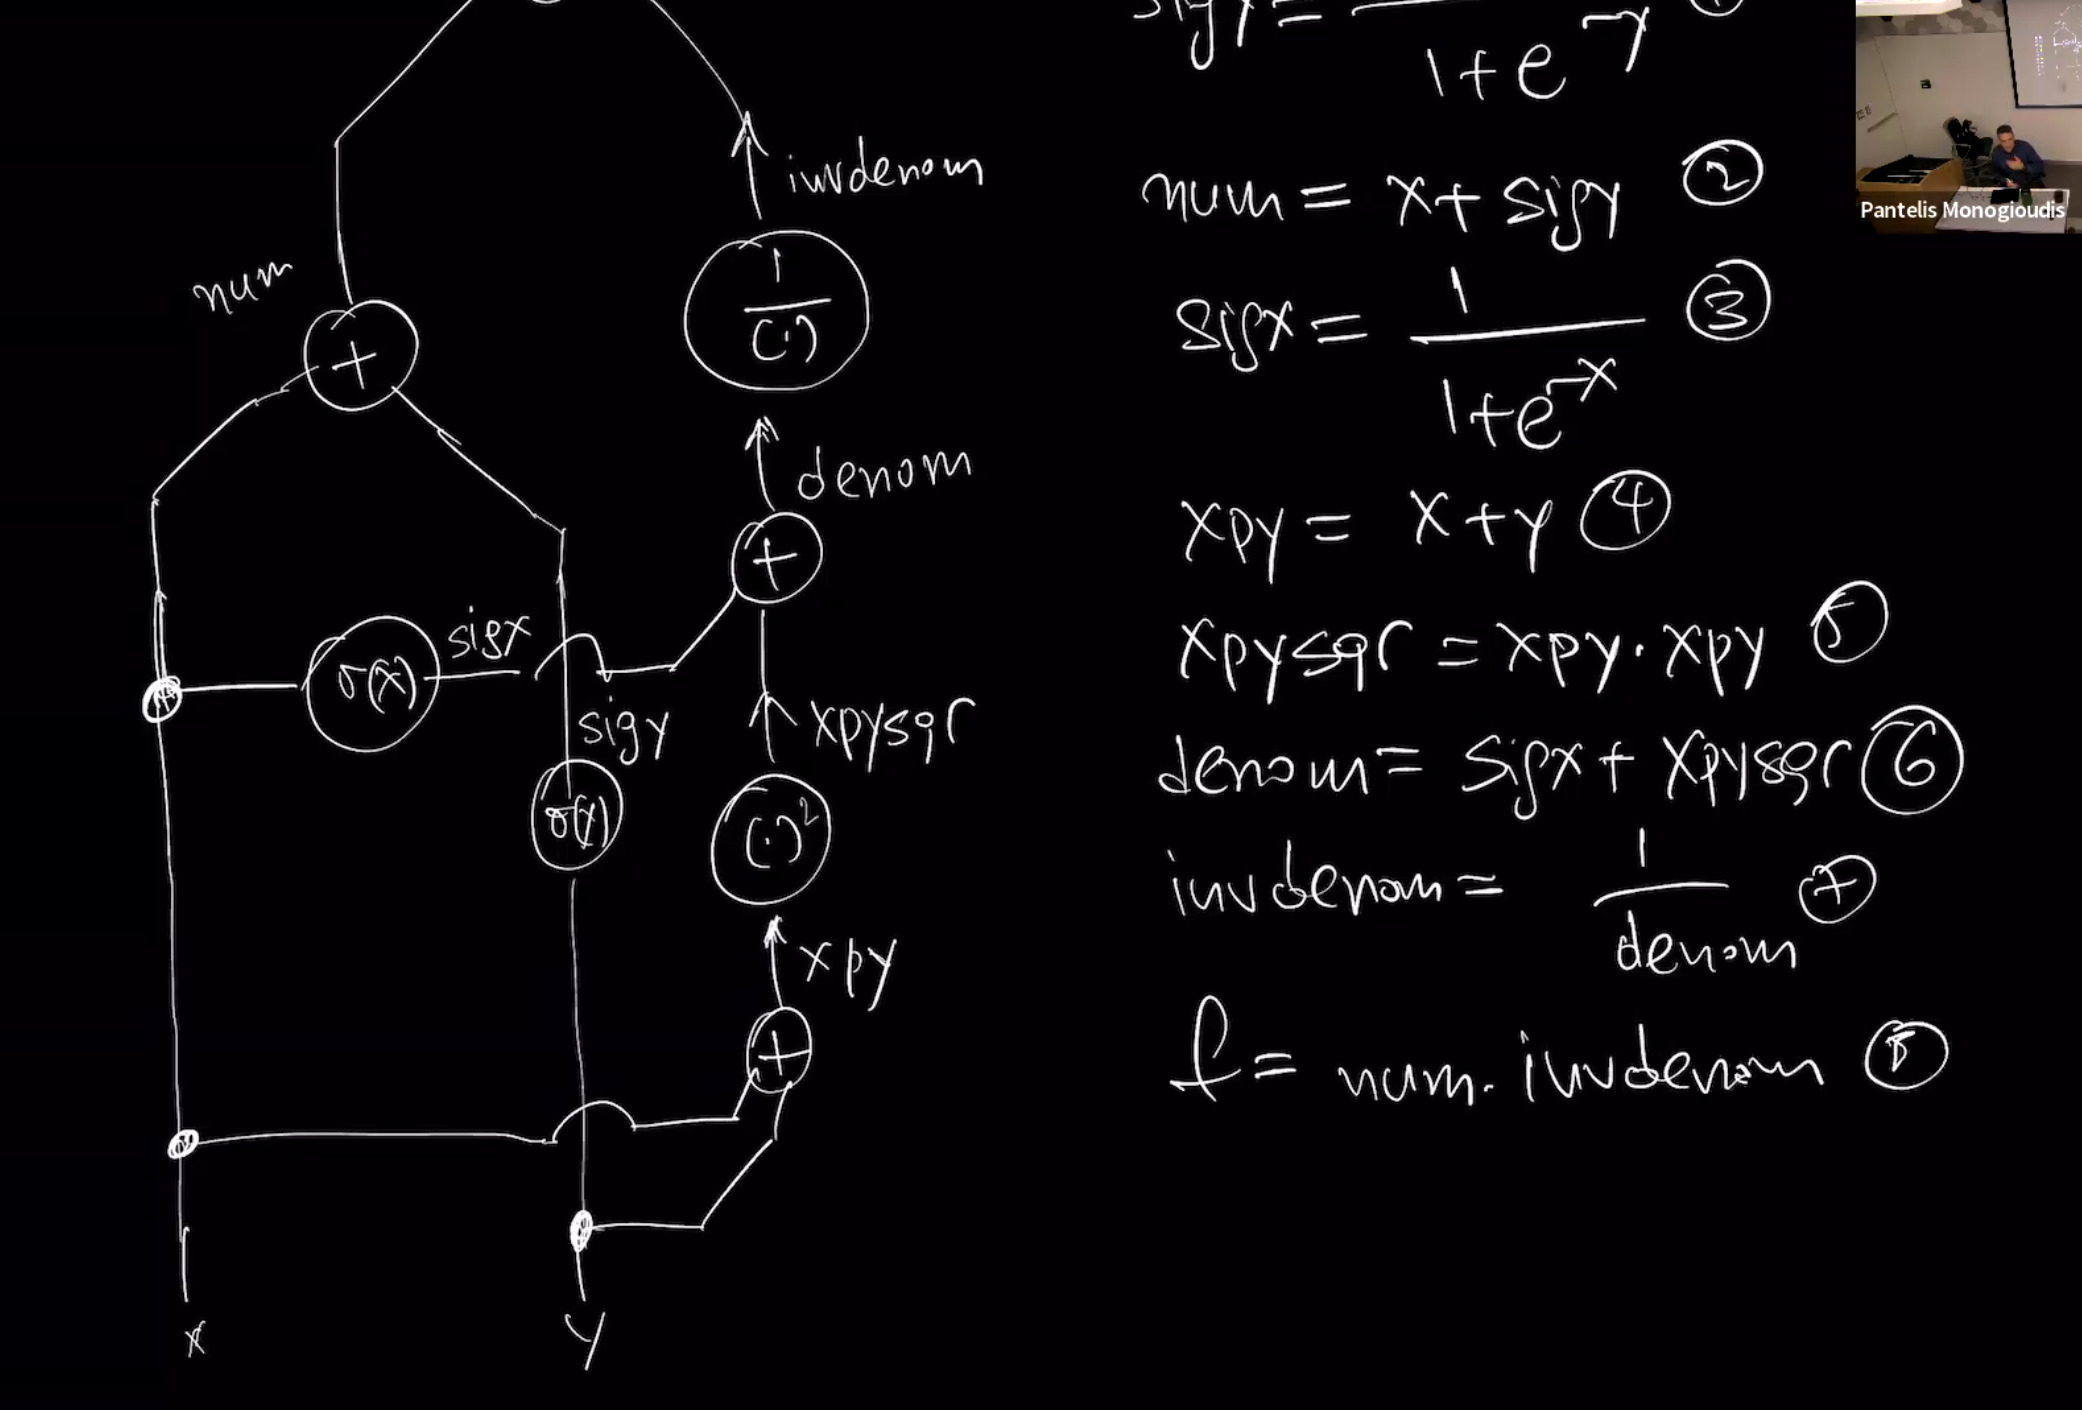 invdenom
num
1
(·)
+
denom
+
sigx
σ(x)
sigy
xpysqr
σ(y)
(·)²
xpy
+
x
y
sigy = 1+e^-y
num = x + sigy ②
sigx = 1/(1+e^-x) ③
xpy = x+y ④
xpysqr = xpy · xpy ⑤
denom = sigx + xpysqr ⑥
invdenom = 1/denom ⑦
f = num · invdenom ⑧
Pantelis Monogioudis